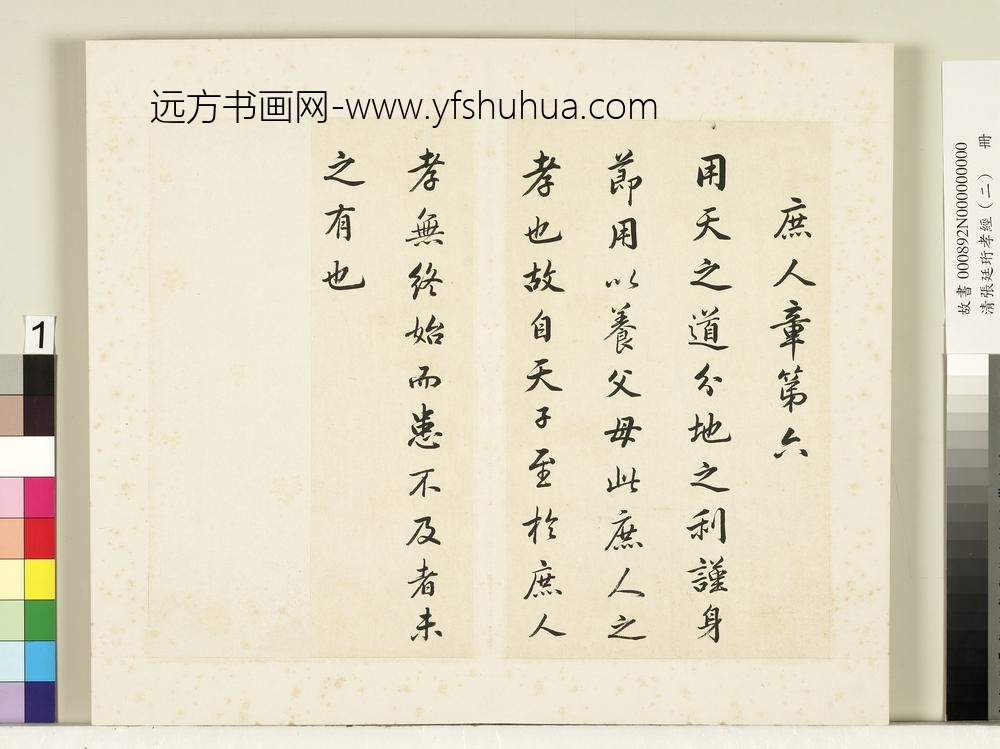 远方书画网-www.yfshuhua.com
庶人章第六
用天之道分地之利謹身
節用以養父母此庶人之
孝也故自天子至於庶人
孝無終始而患不及者未
之有也
故書000892N000000000
清張廷珩孝經（二） 冊
1